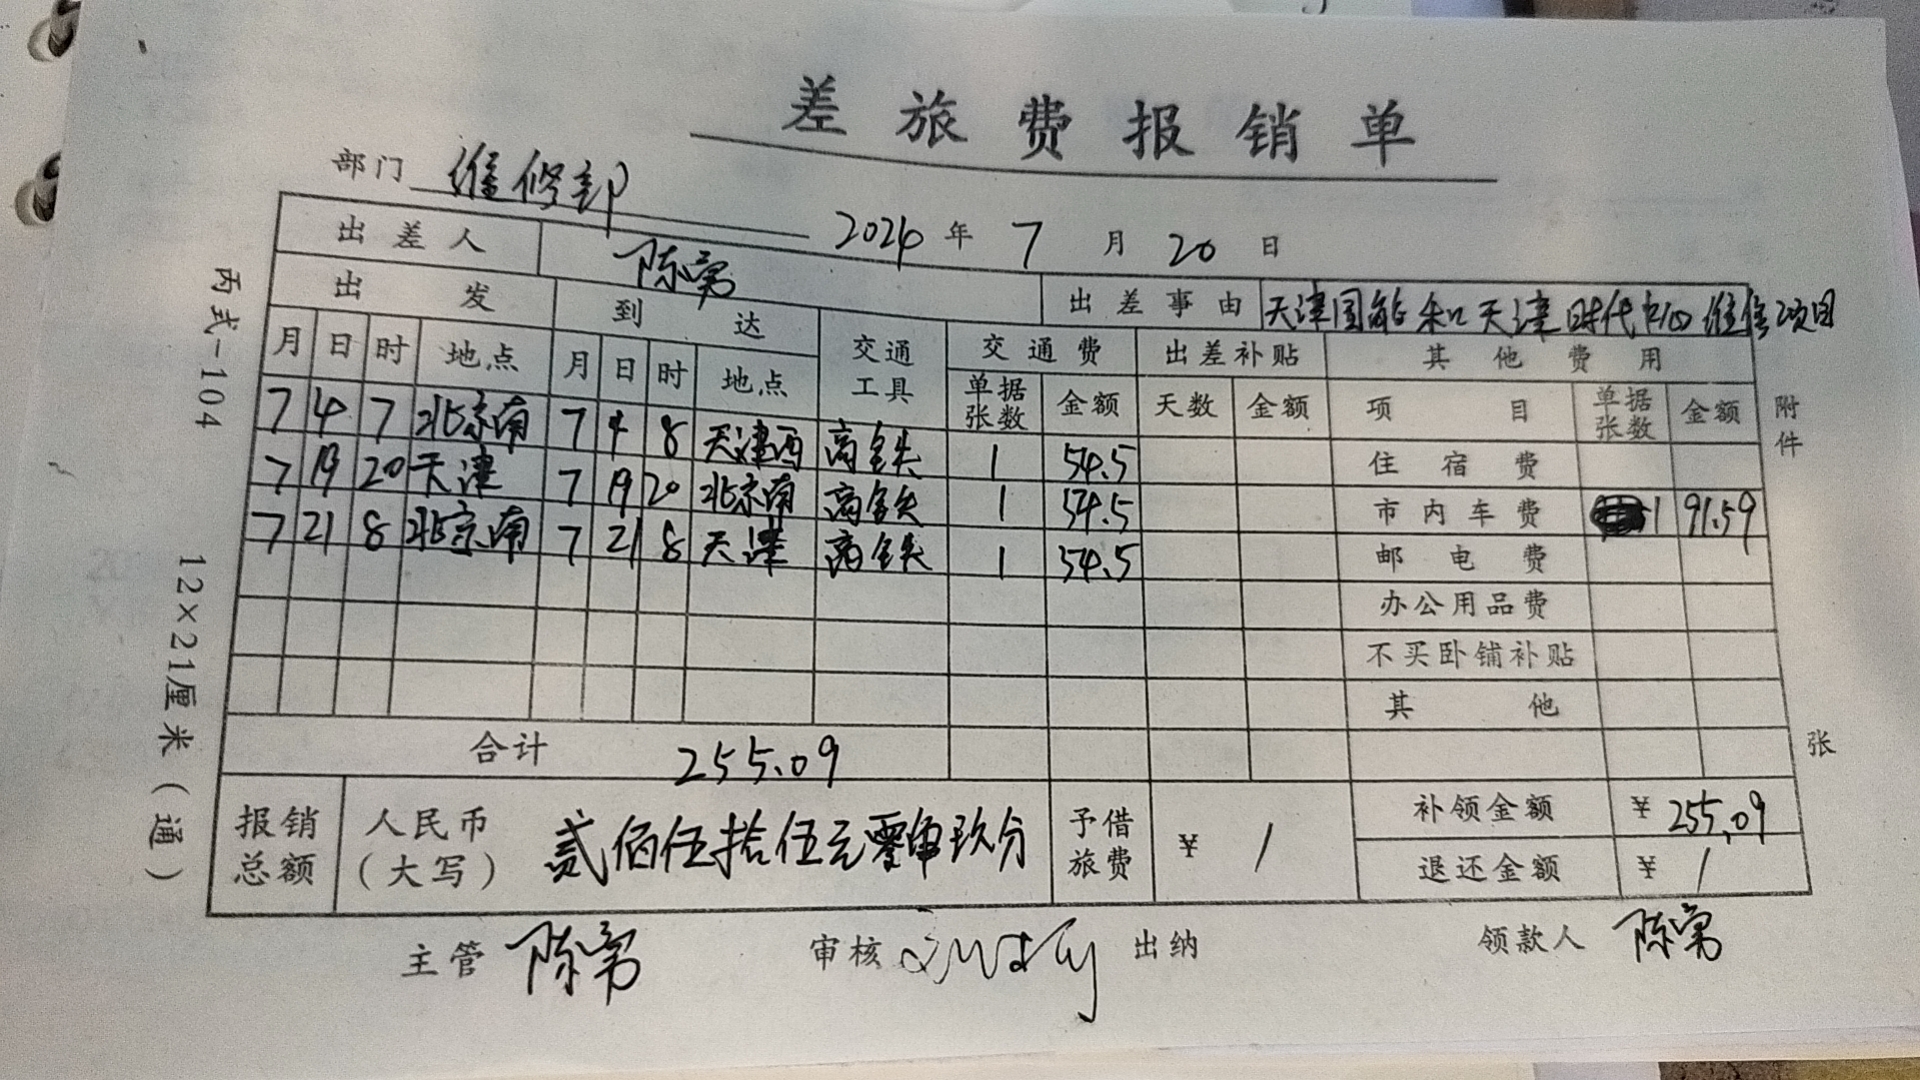 差旅费报销单
部门 维修部 2024年7月20日
出差人 陈勇 出差事由 天津国能和天津时代中心维修项目
出发 到达 交通工具 交通费 出差补贴 其他费用
月 日 时 地点 月 日 时 地点 单据张数 金额 天数 金额 项目 单据张数 金额
7 4 7 北京南 7 4 8 天津西 高铁 1 54.5 住宿费
7 19 20 天津 7 19 20 北京南 高铁 1 54.5 市内车费 1 91.59
7 21 8 北京南 7 21 8 天津 高铁 1 54.5 邮电费
办公用品费
不买卧铺补贴
其他
合计 255.09
报销总额 人民币(大写) 贰佰伍拾伍元零角玖分 予借旅费 ¥ / 补领金额 ¥ 255.09
退还金额 ¥ /
主管 陈勇 审核 出纳 领款人 陈勇
丙式-104 12×21厘米(通)
附件 张